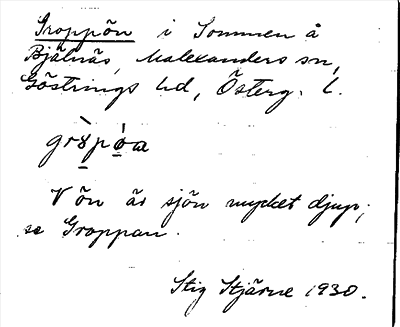 Groppön i Sommen å
Bjälnäs, Malexanders sn,
Göstrings hd, Österg. l.
Vön är sjön mycket djup;
se Groppan.
Stig Stjärne 1930.